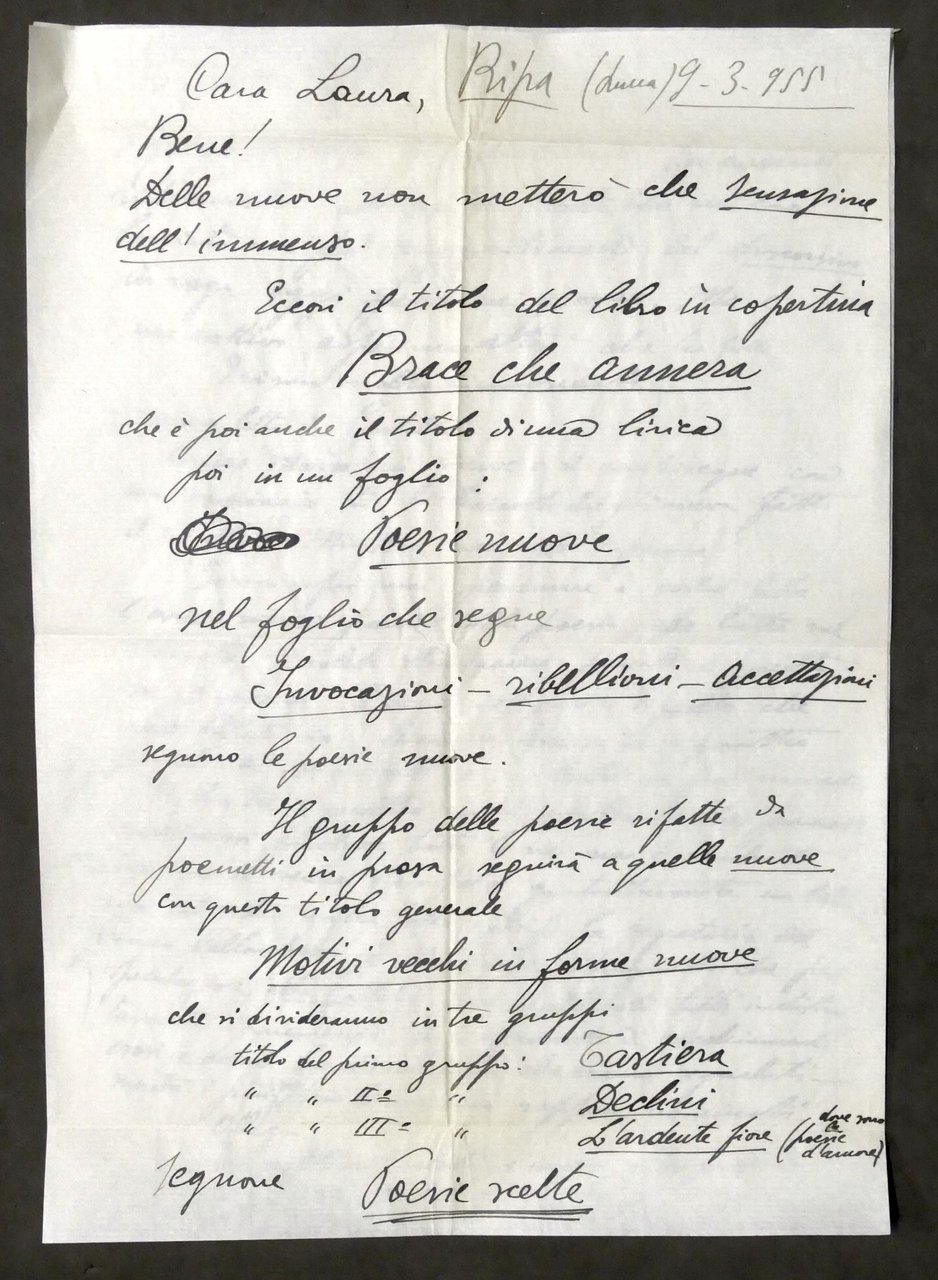 Cara Laura, Ripa (Lucca) 9-3-955
Bene!
Delle nuove non metterò che Sensazione
dell'immenso.
Eccovi il titolo del libro in copertina
Brace che annera
che è poi anche il titolo di una lirica
poi in un foglio:
Poesie nuove
nel foglio che segue
Invocazioni – ribellioni – Accettazioni
seguono le poesie nuove.
Il gruppo delle poesie rifatte da
poemetti in prosa seguirà a quelle nuove
con questo titolo generale
Motivi vecchi in forme nuove
che si divideranno in tre gruppi
titolo del primo gruppo: Tastiera
" " II° " Declini
" " III° " L'ardente fiore (dove sono le poesie d'amore)
Seguono Poesie scelte